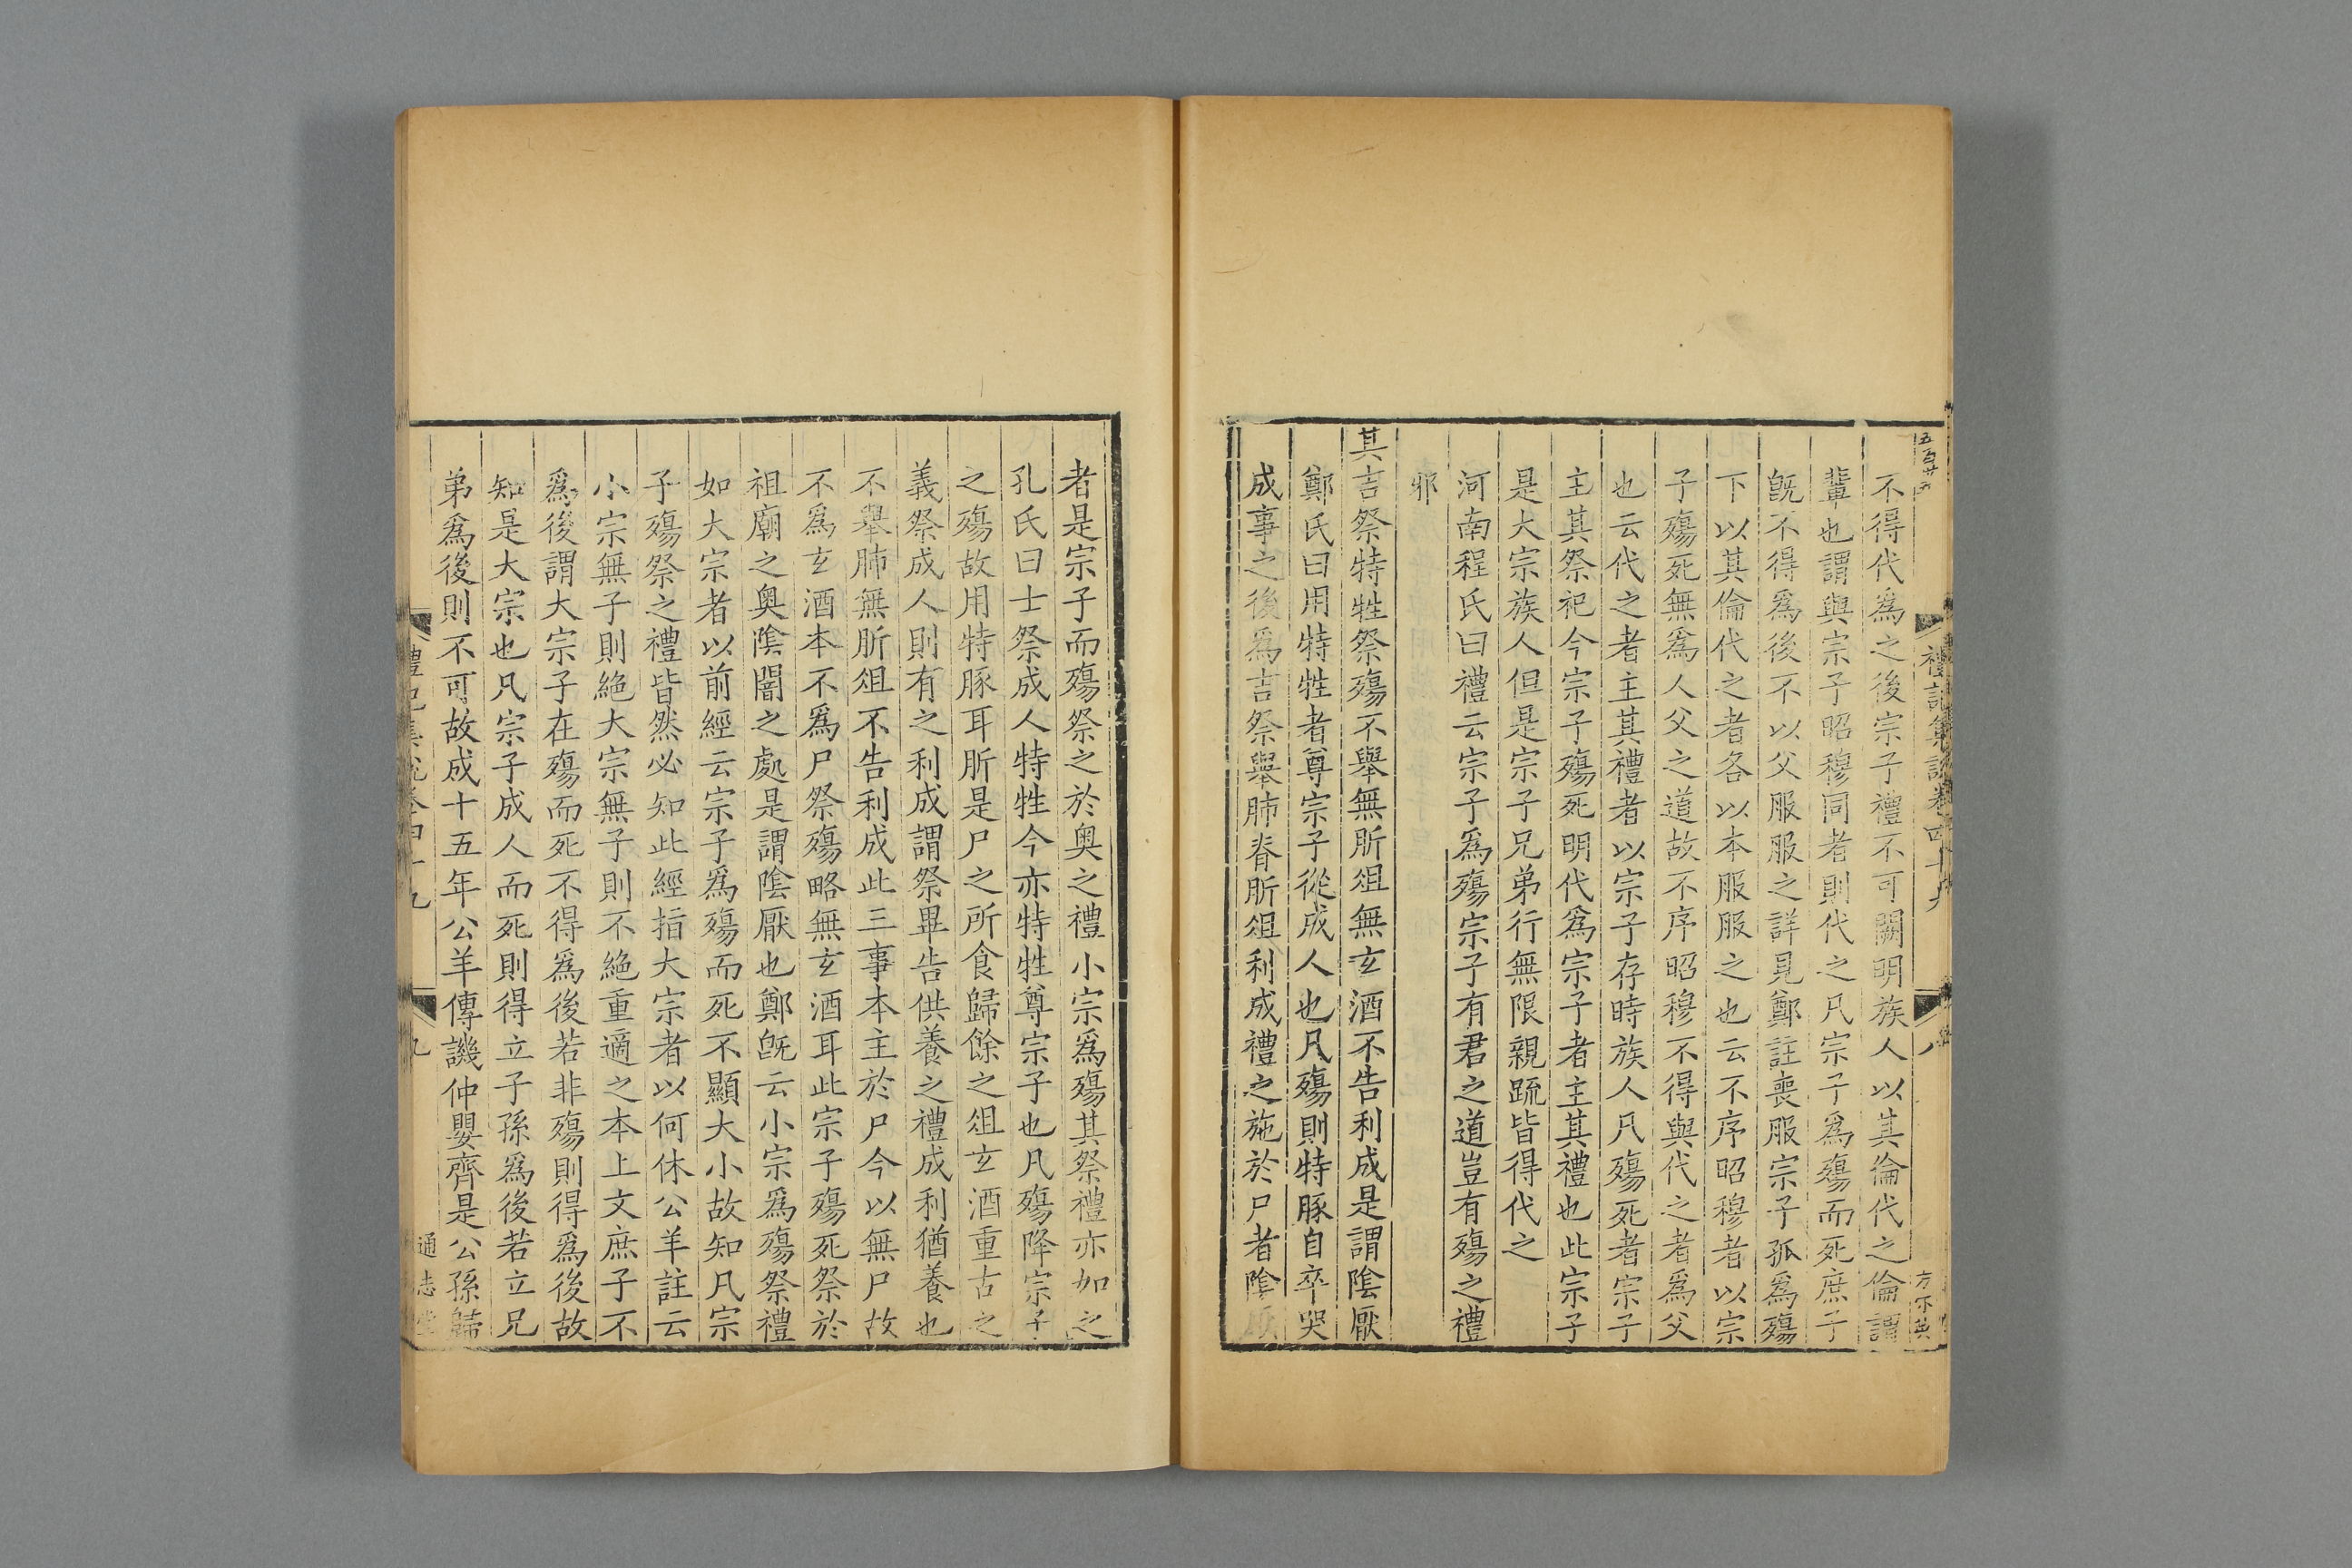 五百廿五
禮記集說卷四十九
八
方不英
不得代爲之後宗子禮不可闕明族人以其倫代之倫謂
輩也謂與宗子昭穆同者則代之凡宗子爲殤而死庶子
旣不得爲後不以父服服之詳見鄭註喪服宗子孤爲殤
下以其倫代之者各以本服服之也云不序昭穆者以宗
子殤死無爲人父之道故不序昭穆不得與代之者爲父
也云代之者主其禮者以宗子存時族人凡殤死者宗子
主其祭祀今宗子殤死明代爲宗子者主其禮也此宗子
是大宗族人但是宗子兄弟行無限親疏皆得代之
河南程氏曰禮云宗子爲殤宗子有君之道豈有殤之禮
邪
其吉祭特牲祭殤不舉無肵俎無玄酒不告利成是謂陰厭
鄭氏曰用特牲者尊宗子從成人也凡殤則特豚自卒哭
成事之後爲吉祭舉肺脊肵俎利成禮之施於尸者陰厭
者是宗子而殤祭之於奧之禮小宗爲殤其祭禮亦如之
孔氏曰士祭成人特牲今亦特牲尊宗子也凡殤降宗子
之殤故用特豚耳肵是尸之所食歸餘之俎玄酒重古之
義祭成人則有之利成謂祭畢告供養之禮成利猶養也
不舉肺無肵俎不告利成此三事本主於尸今以無尸故
不爲玄酒本不爲尸祭殤略無玄酒耳此宗子殤死祭於
祖廟之奧陰闇之處是謂陰厭也鄭旣云小宗爲殤祭禮
如大宗者以前經云宗子爲殤而死不顯大小故知凡宗
子殤祭之禮皆然必知此經指大宗者以何休公羊註云
小宗無子則絕大宗無子則不絕重適之本上文庶子不
爲後謂大宗子在殤而死不得爲後若非殤則得爲後故
知是大宗也凡宗子成人而死則得立子孫爲後若立兄
弟爲後則不可故成十五年公羊傳譏仲嬰齊是公孫歸
禮記集說卷四十九
九
通志堂